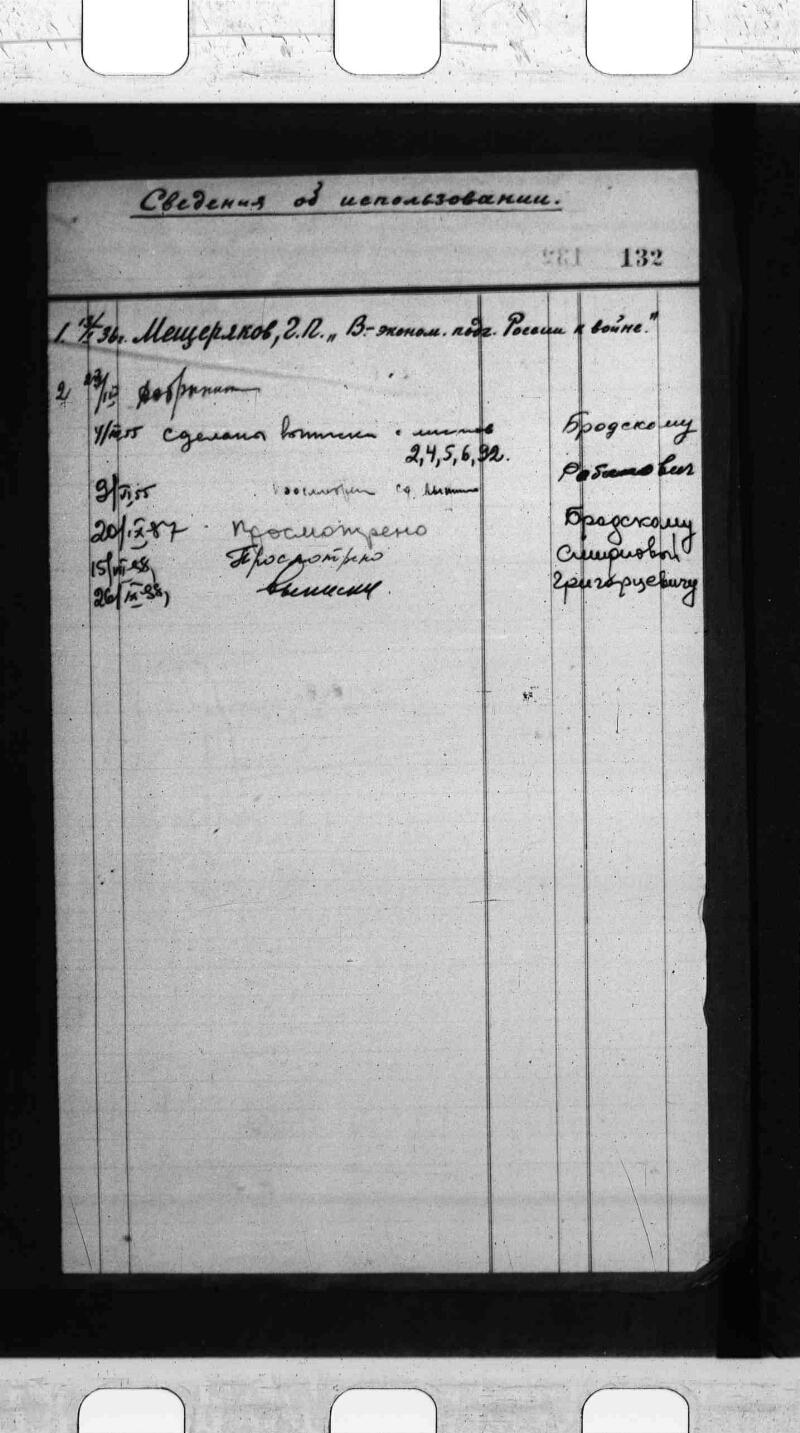 Сведения об использовании.
132
1. 36г. Мещеряков, Г.П. „В.-эконом. подг. России к войне."
2 23/IV
4/III 55 Сделаны выписки с листов Бродскому
2,4,5,6,92.
9/VI 55 Просмотрен Рабинович
20/IX-87 Просмотрено Бродскому
15/VII-88, Просмотрено Смирновой
26/IX-88, Выписки. Григорцевичу